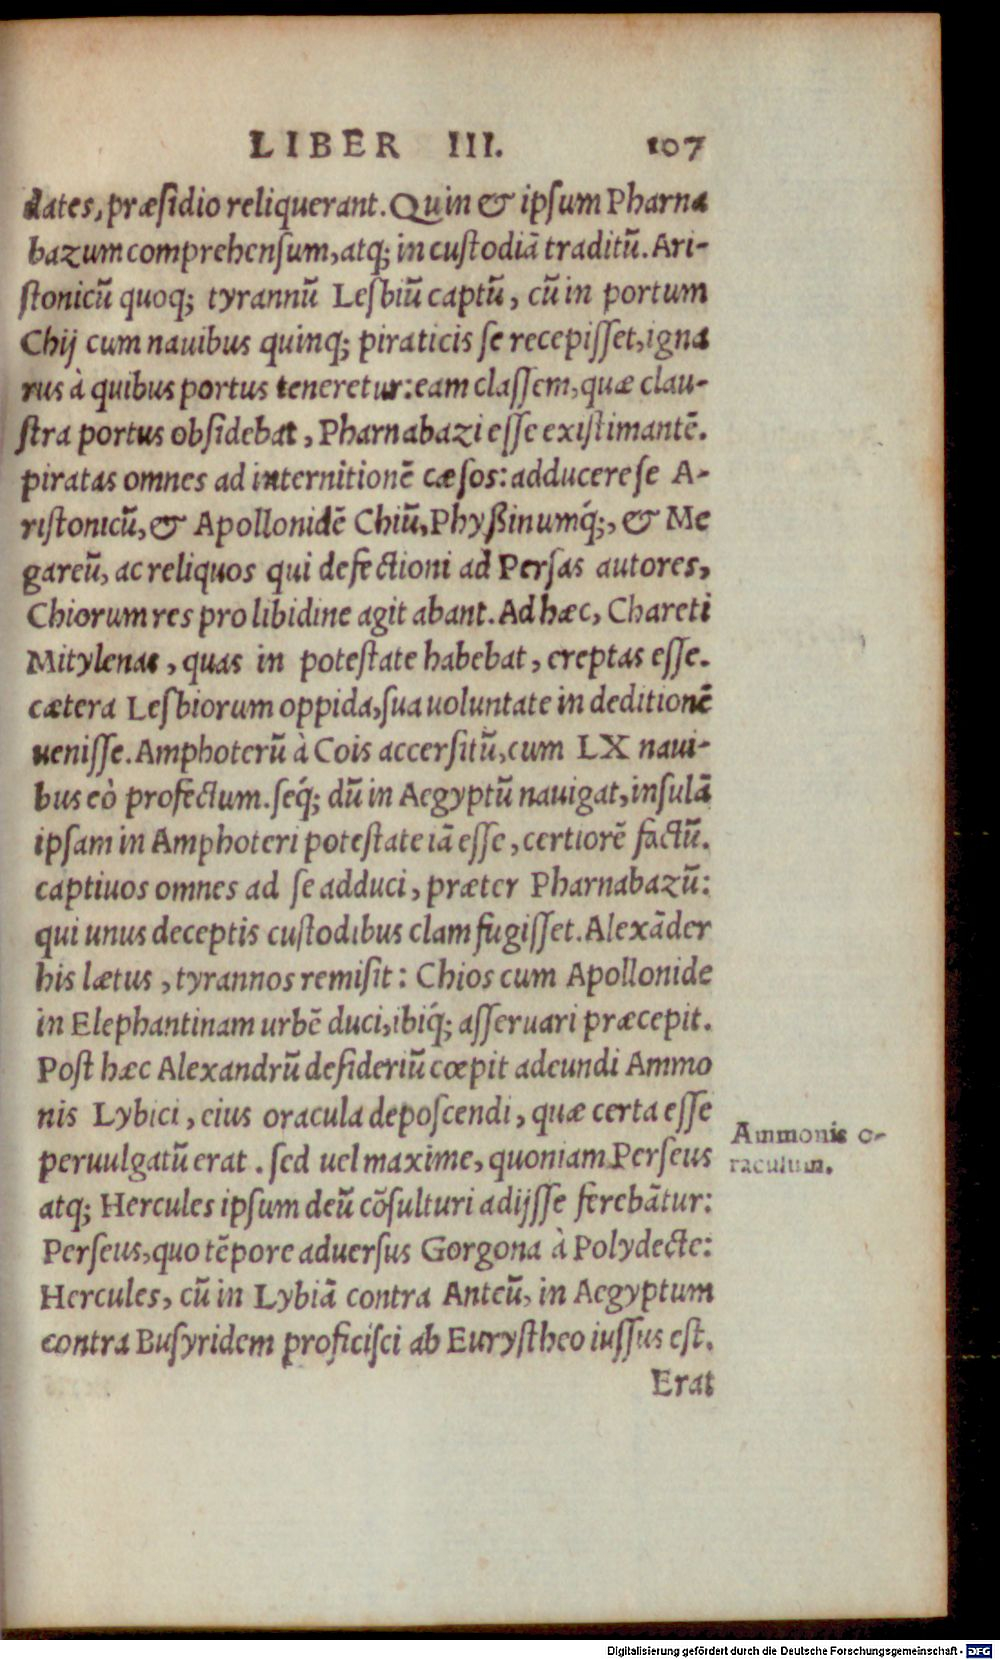 LIBER III. 107
dates, præſidio reliquerant. Quin & ipſum Pharna
bazum comprehenſum, atq; in cuſtodiã traditũ. Ari-
ſtonicũ quoq; tyrannũ Lesbiũ captũ, cũ in portum
Chij cum nauibus quinq; piraticis ſe recepiſſet, igna
rus à quibus portus teneretur: eam claſſem, quæ clau-
ſtra portus obſidebat, Pharnabazi eſſe exiſtimantẽ.
piratas omnes ad internitionẽ cæſos: adducere ſe A-
riſtonicũ, & Apollonidẽ Chiũ, Phyßinumq́;, & Me
gareũ, ac reliquos qui defectioni ad Perſas autores,
Chiorum res pro libidine agit abant. Ad hæc, Chareti
Mitylenas, quas in poteſtate habebat, ereptas eſſe.
cætera Lesbiorum oppida, ſua uoluntate in deditionẽ
ueniſſe. Amphoterũ à Cois accerſitũ, cum LX naui-
bus eò profectum. ſeq́; dũ in Aegyptũ nauigat, inſulã
ipſam in Amphoteri poteſtate iã eſſe, certiorẽ factũ.
captiuos omnes ad ſe adduci, præter Pharnabazũ:
qui unus deceptis cuſtodibus clam fugiſſet. Alexãder
his lætus, tyrannos remiſit: Chios cum Apollonide
in Elephantinam urbẽ duci, ibiq́; aſſeruari præcepit.
Poſt hæc Alexandrũ deſideriũ cœpit adeundi Ammo
nis Lybici, eius oracula depoſcendi, quæ certa eſſe
peruulgatũ erat. ſed uel maxime, quoniam Perſeus
atq; Hercules ipſum deũ cõſulturi adijſſe ferebãtur:
Perſeus, quo tẽpore aduerſus Gorgona à Polydecte:
Hercules, cũ in Lybiã contra Anteũ, in Aegyptum
contra Buſyridem proficiſci ab Euryſtheo iuſſus eſt.
Erat
Ammonis o-
raculum.
Digitalisierung gefördert durch die Deutsche Forschungsgemeinschaft - DFG